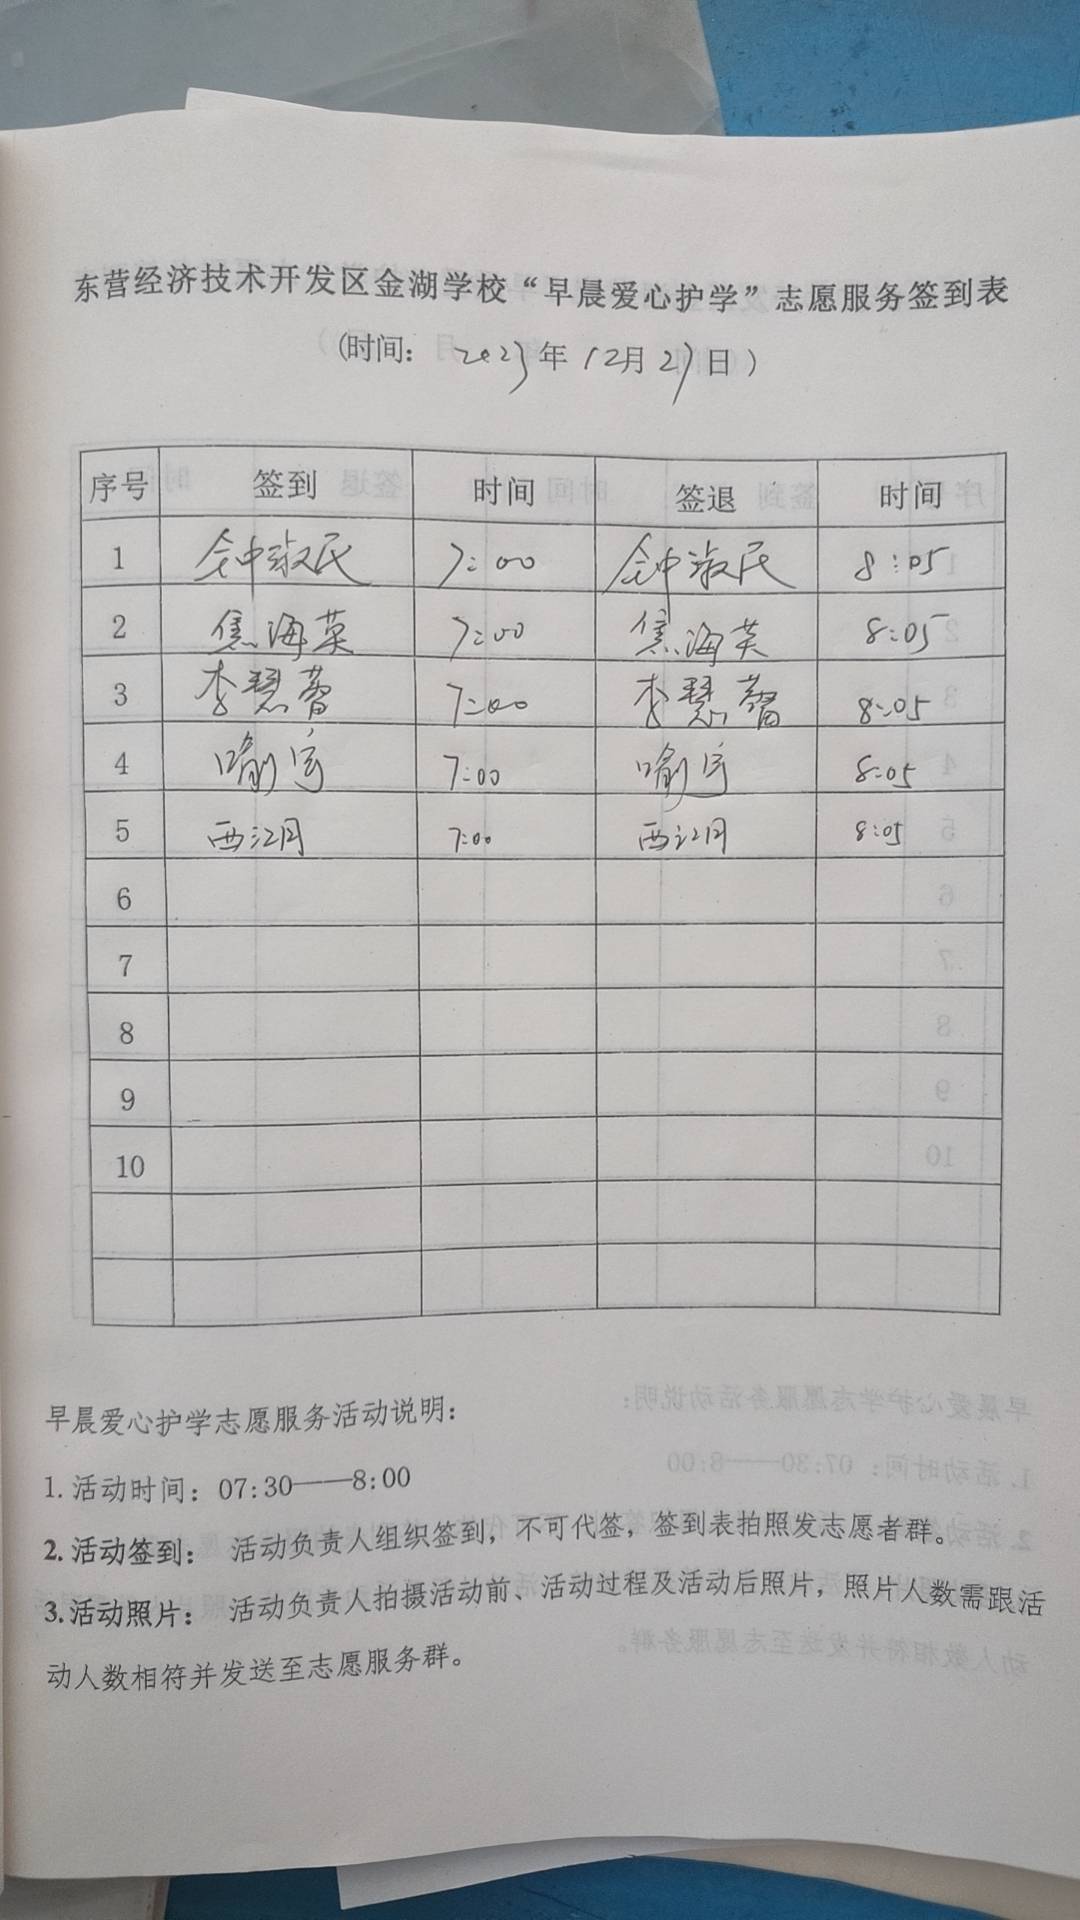 东营经济技术开发区金湖学校“早晨爱心护学”志愿服务签到表
(时间： 2023年12月27日)
序号 签到 时间 签退 时间
1 钟淑民 7:00 钟淑民 8:05
2 焦海英 7:00 焦海英 8:05
3 李慧 7:00 李慧 8:05
4 喻 7:00 喻 8:05
5 西江月 7:00 西江月 8:05
6
7
8
9
10
早晨爱心护学志愿服务活动说明：
1.活动时间：07:30——8:00
2.活动签到： 活动负责人组织签到，不可代签，签到表拍照发志愿者群。
3.活动照片： 活动负责人拍摄活动前、活动过程及活动后照片，照片人数需跟活
动人数相符并发送至志愿服务群。